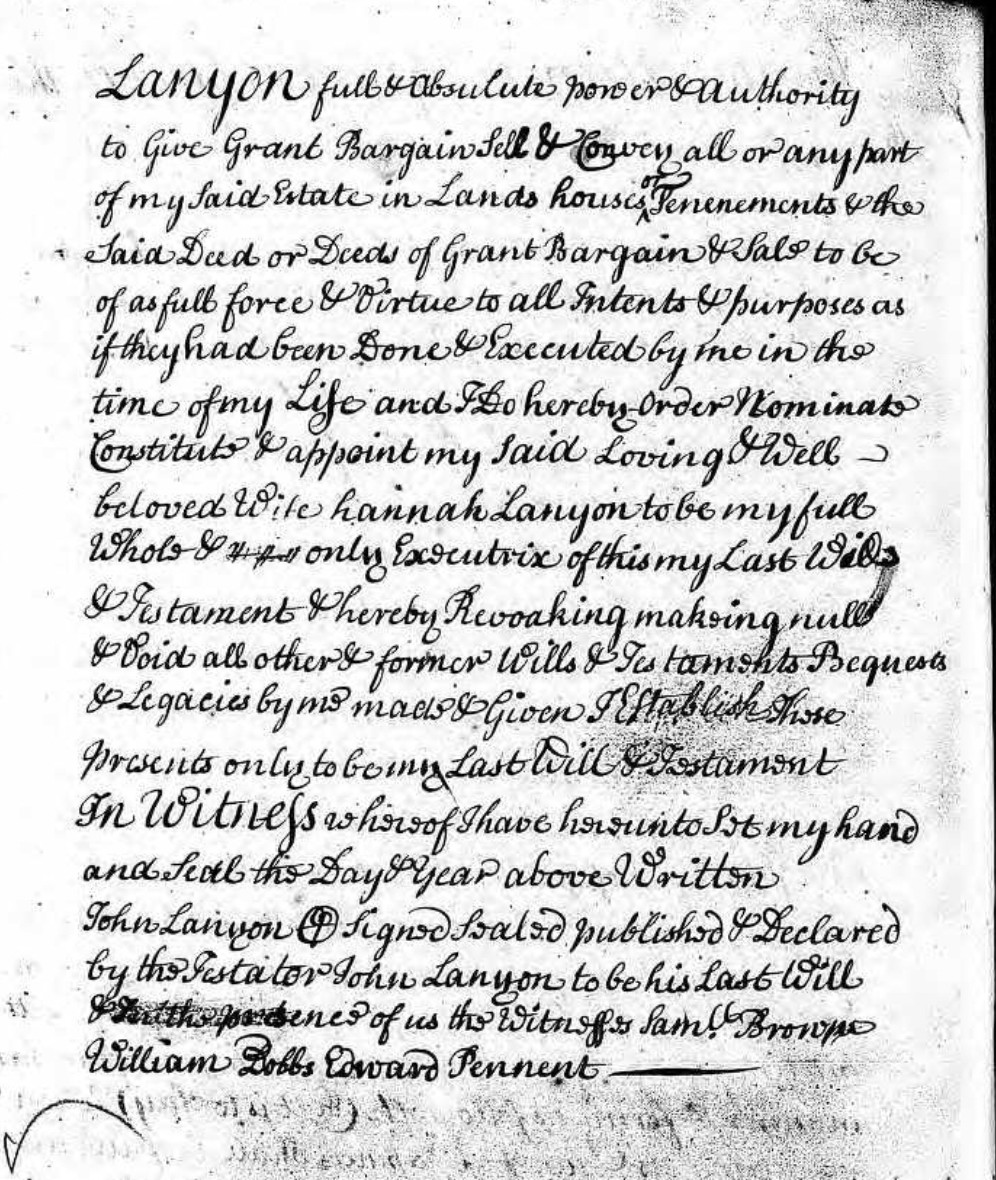 Lanyon full & absulute power & authority
to Give Grant Bargain Sell & Convey all or any part
of my Said Estate in Lands houses or Tenenements & the
Said Deed or Deeds of Grant Bargain & Sale to be
of as full force & Virtue to all Intents & purposes as
if they had been Done & Executed by me in the
time of my Life and I Do hereby Order Nominate
Constitute & appoint my Said Loving & Well
beloved Wife hannah Lanyon to be my full
Whole & only Executrix of this my Last Will
& Testament & hereby Revoaking makeing null
& Void all other & former Wills & Testaments Bequests
& Legacies by me made & Given I Establish These
presents only to be my Last Will & Testament
In Witness whereof I have hereunto Set my hand
and Seal the Day & Year above Written
John Lanyon Signed Sealed published & Declared
by the Testator John Lanyon to be his Last Will
& In the presence of us the Witnesses Saml. Brown
William Dobbs Edward Pennent